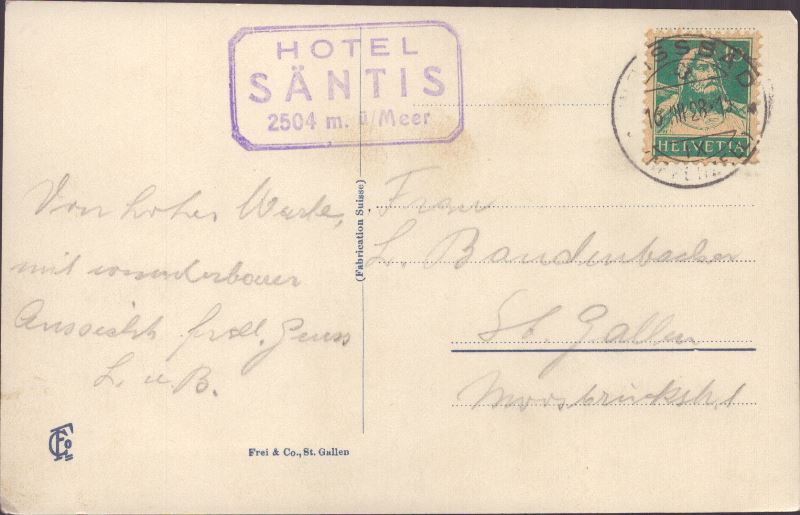 HOTEL
SÄNTIS
2504 m. ü/Meer
HELVETIA
Von hoher Warte,
mit wunderbarer
Aussicht frdl. Gruss
L. u. B.
(Fabrication Suisse)
Frau
L. Baudenbacher
St. Gallen
Moosbruckstr. 1
Frei & Co., St. Gallen